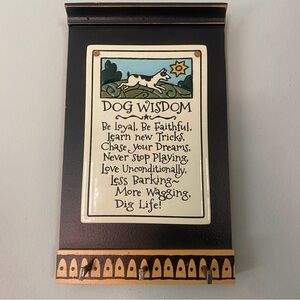 DOG WISDOM
Be loyal. Be Faithful.
Learn new Tricks.
Chase your Dreams.
Never Stop Playing.
Love Unconditionally.
Less Barking~
More Wagging.
Dig Life!